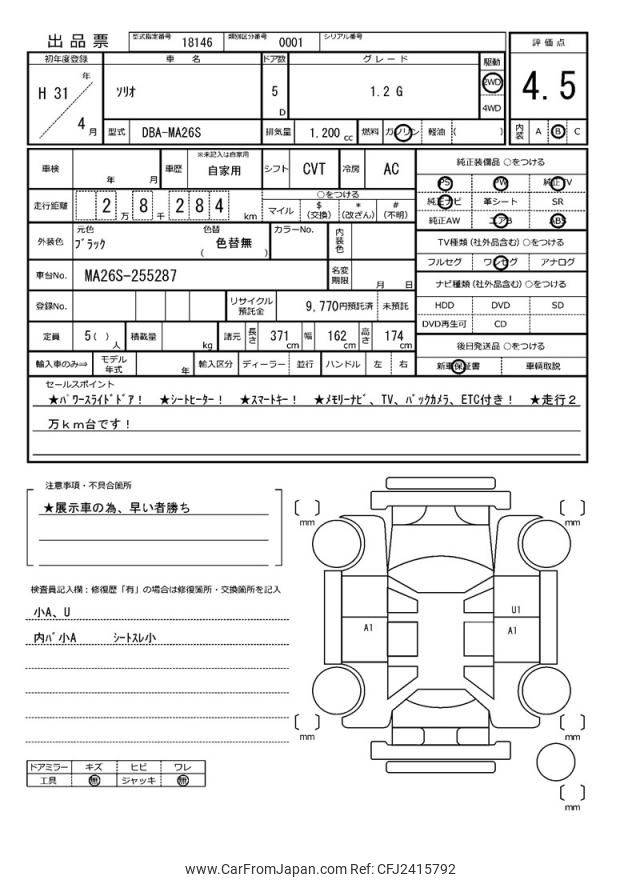 出品票 型式指定番号 18146 類別区分番号 0001 シリアル番号
評価点
初年度登録 車名 ドア数 グレード 駆動
H 31 年 ソリオ 5 D 1.2 G 2WD 4.5
4WD
4 月 型式 DBA-MA26S 排気量 1.200 cc 燃料 ガソリン 軽油 ( ) 内装 A B C
車検 年 月 車歴 ※未記入は自家用 自家用 シフト CVT 冷房 AC
純正装備品 ○をつける
PS PW 純正TV
走行距離 2 万 8 千 2 8 4 km
○をつける
マイル $ (交換) * (改ざん) # (不明)
純正ナビ 革シート SR
純正AW エアB ABS
外装色 元色 ブラック 色替 色替無 ( ) カラーNo. 内装色
TV種類 (社外品含む) ○をつける
フルセグ ワンセグ アナログ
車台No. MA26S-255287 名変期限 月 日
ナビ種類 (社外品含む) ○をつける
登録No. リサイクル預託金 9,770円預託済 未預託
HDD DVD SD
DVD再生可 CD
定員 5( ) 人 積載量 kg 諸元 長さ 371 cm 幅 162 cm 高さ 174 cm
後日発送品 ○をつける
輸入車のみ⇒ モデル年式 年 輸入区分 ディーラー 並行 ハンドル 左 右
新車保証書 車輌取説
セールスポイント
★パワースライドドア! ★シートヒーター! ★スマートキー! ★メモリーナビ、TV、バックカメラ、ETC付き! ★走行2
万km台です!
注意事項・不具合箇所
★展示車の為、早い者勝ち
mm
mm
検査員記入欄:修復歴「有」の場合は修復箇所・交換箇所を記入
小A、U
U1
内バ小A シートスレ小
A1
A1
mm
mm
ドアミラー キズ ヒビ ワレ
工具 無 ジャッキ 無
mm
www.CarFromJapan.com Ref: CFJ2415792